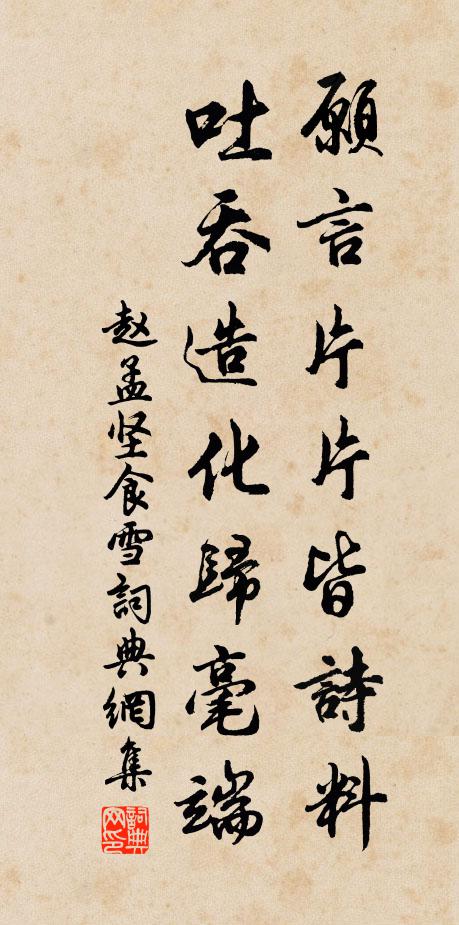 願言片片皆詩料
吐吞造化歸毫端
赵孟坚食雪詞典網集
詞典网印